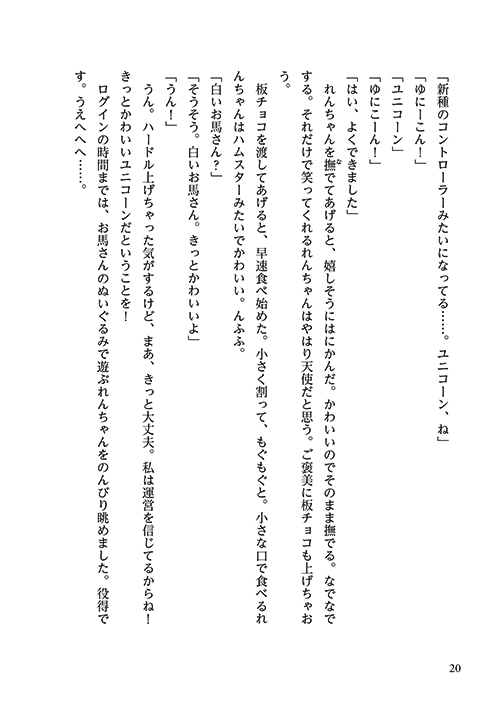 「新種のコントローラーみたいになってる……。ユニコーン、ね」
「ゆにーこん！」
「ユニコーン」
「ゆにこーん！」
「はい、よくできました」
れんちゃんを撫でてあげると、嬉しそうにはにかんだ。かわいいのでそのまま撫でる。なでなで
する。それだけで笑ってくれるれんちゃんはやはり天使だと思う。ご褒美に板チョコも上げちゃお
う。
板チョコを渡してあげると、早速食べ始めた。小さく割って、もぐもぐと。小さな口で食べるれ
んちゃんはハムスターみたいでかわいい。んふふ。
「白いお馬さん？」
「そうそう。白いお馬さん。きっとかわいいよ」
「うん！」
うん。ハードル上げちゃった気がするけど、まあ、きっと大丈夫。私は運営を信じてるからね！
きっとかわいいユニコーンだということを！
ログインの時間までは、お馬さんのぬいぐるみで遊ぶれんちゃんをのんびり眺めました。役得で
す。うえへへへ……。
20